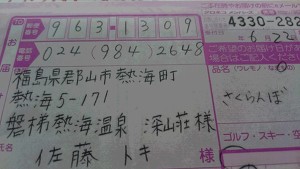 郵便番号 963-1309
電話番号 024 (984) 2648
福島県郡山市熱海町
熱海5-171
磐梯熱海温泉 深山荘様
佐藤 トキ 様
4330-282
6月22
さくらんぼ
ゴルフ・スキー・空